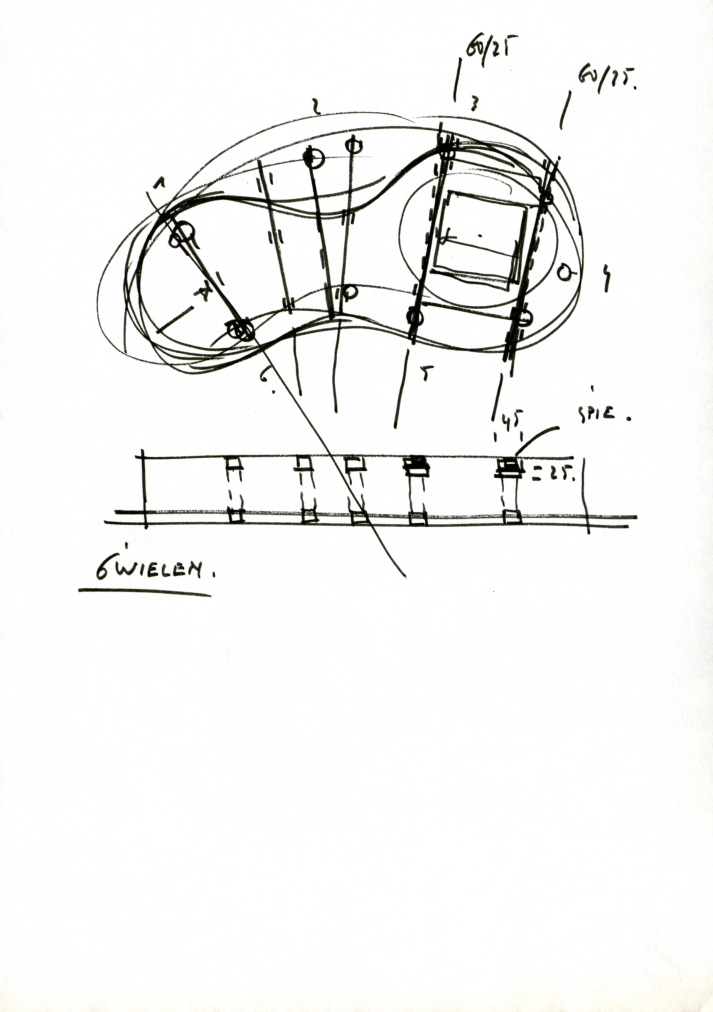 60/25
60/25.
2
3
1
4
5
6.
45
SPIE.
= 25.
6 WIELEN.